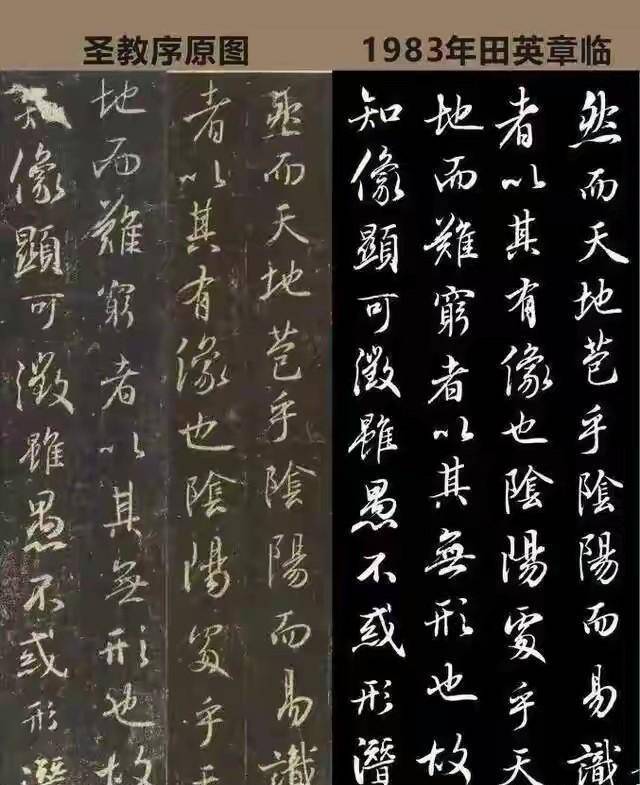 圣教序原图
然而天地苞乎陰陽而易識
者以其有像也陰陽處乎天
地而難窮者以其無形也故
知像顯可徵雖愚不惑形潛
1983年田英章临
然而天地苞乎陰陽而易識
者以其有像也陰陽處乎天
地而難窮者以其無形也故
知像顯可徵雖愚不惑形潛